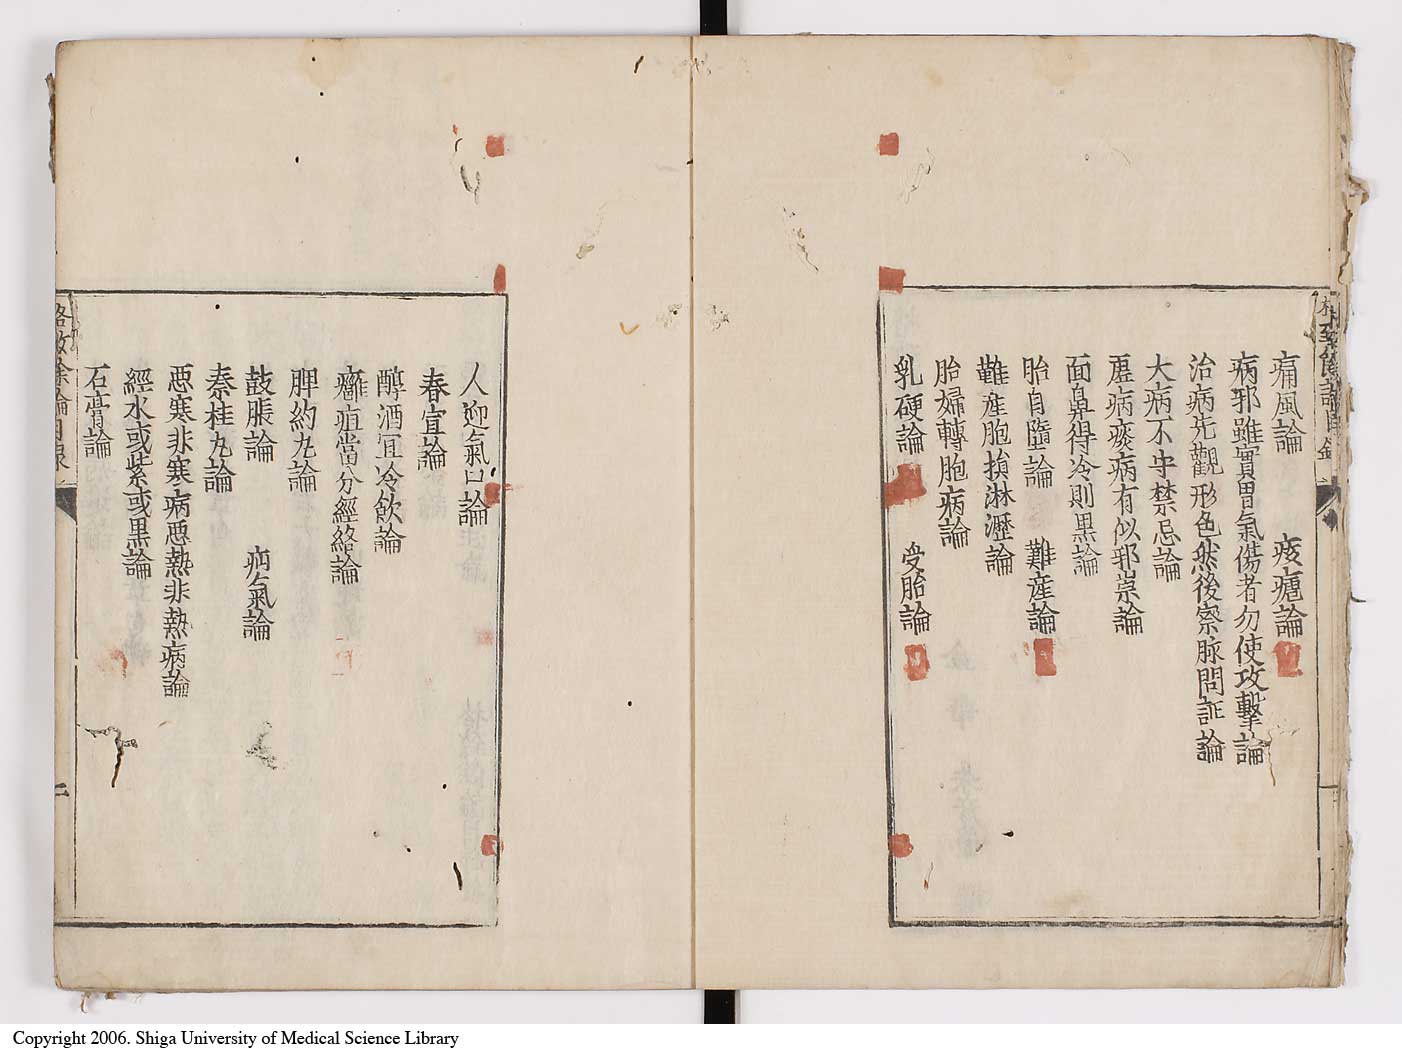 痛風論　痎瘧論
病邪雖實胃氣傷者勿使攻擊論
治病先觀形色然後察脉問証論
大病不守禁忌論
虛病痰病有似邪祟論
面鼻得冷則黒論
胎自墮論　難産論
難産胞損淋瀝論
胎婦轉胞病論
乳硬論　受胎論
人迎氣口論
春宣論
醇酒宜冷飲論
癰疽當分經絡論
脾約丸論
鼓脹論　疝氣論
秦桂丸論
惡寒非寒病惡熱非熱病論
經水或紫或黒論
石膏論
格致余論目录
二
Copyright 2006. Shiga University of Medical Science Library